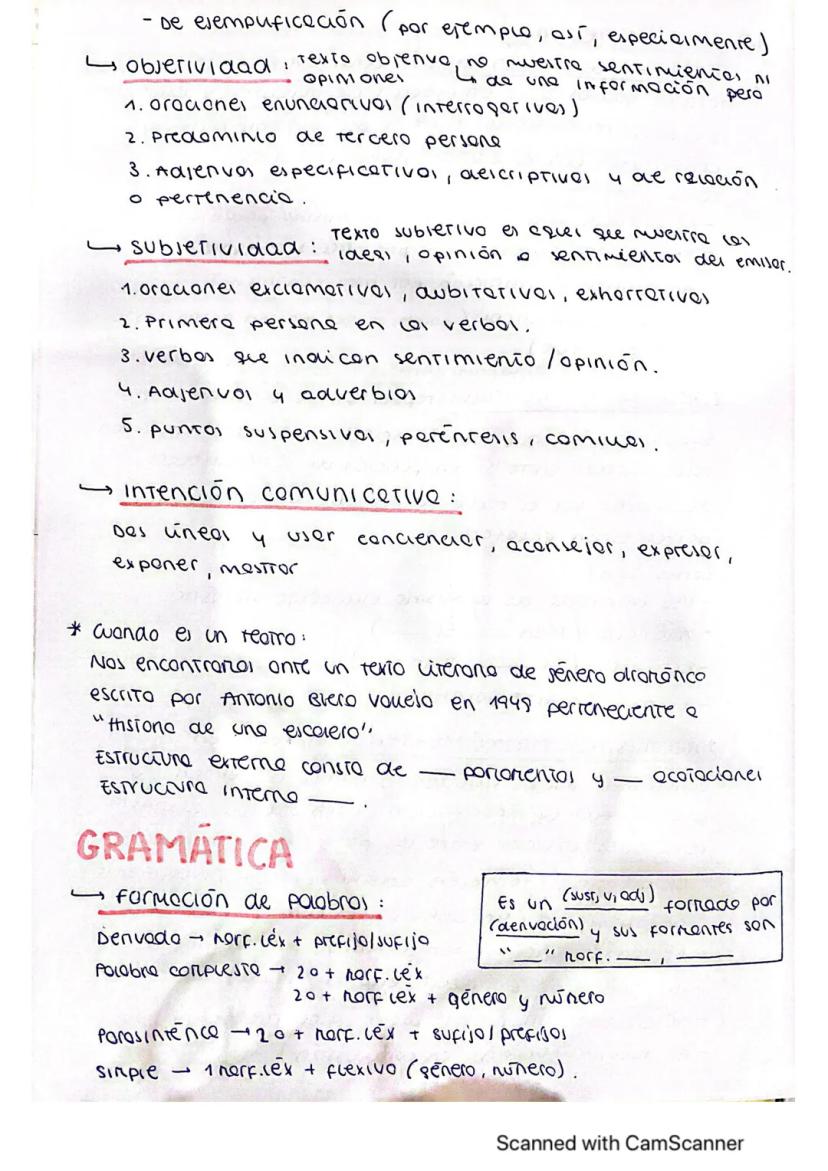 - De ejemplificación (por ejemplo, así, especialmente)
↳ objetividad: Texto objetivo no muestra sentimientos ni
opiniones ↳ da una información pero
1. oraciones enunciativas (interrogativas)
2. Predominio de tercera persona
3. Adjetivos especificativos, descriptivos y de relación
o pertenencia.
↳ subjetividad: Texto subjetivo es aquel que muestra las
ideas, opinión o sentimientos del emisor.
1. oraciones exclamativas, dubitativas, exhortativas
2. Primera persona en los verbos.
3. verbos que indican sentimiento / opinión.
4. Adjetivos y adverbios
5. puntos suspensivos, paréntesis, comillas.
↳ intención comunicativa:
Dos líneas y usar concienciar, aconsejar, expresar,
exponer, mostrar
* Cuando es un teatro:
Nos encontramos ante un texto literario de género dramático
escrito por Antonio Buero Vallejo en 1949 perteneciente a
"Historia de una escalera".
Estructura externa consta de ___ parlamentos y ___ acotaciones
Estructura interna ___.
GRAMÁTICA
↳ Formación de palabras:
Derivada → morf. léx + prefijo/sufijo
Palabra compuesta → 2 o + morf. léx
2 o + morf léx + género y número
Parasintética → 2 o + morf. léx + sufijos/prefijos
simple → 1 morf. léx + flexivo (género, número).
Es un (sust, v, adj) formado por
(derivación) y sus formantes son
"___" morf. ___, ___
Scanned with CamScanner